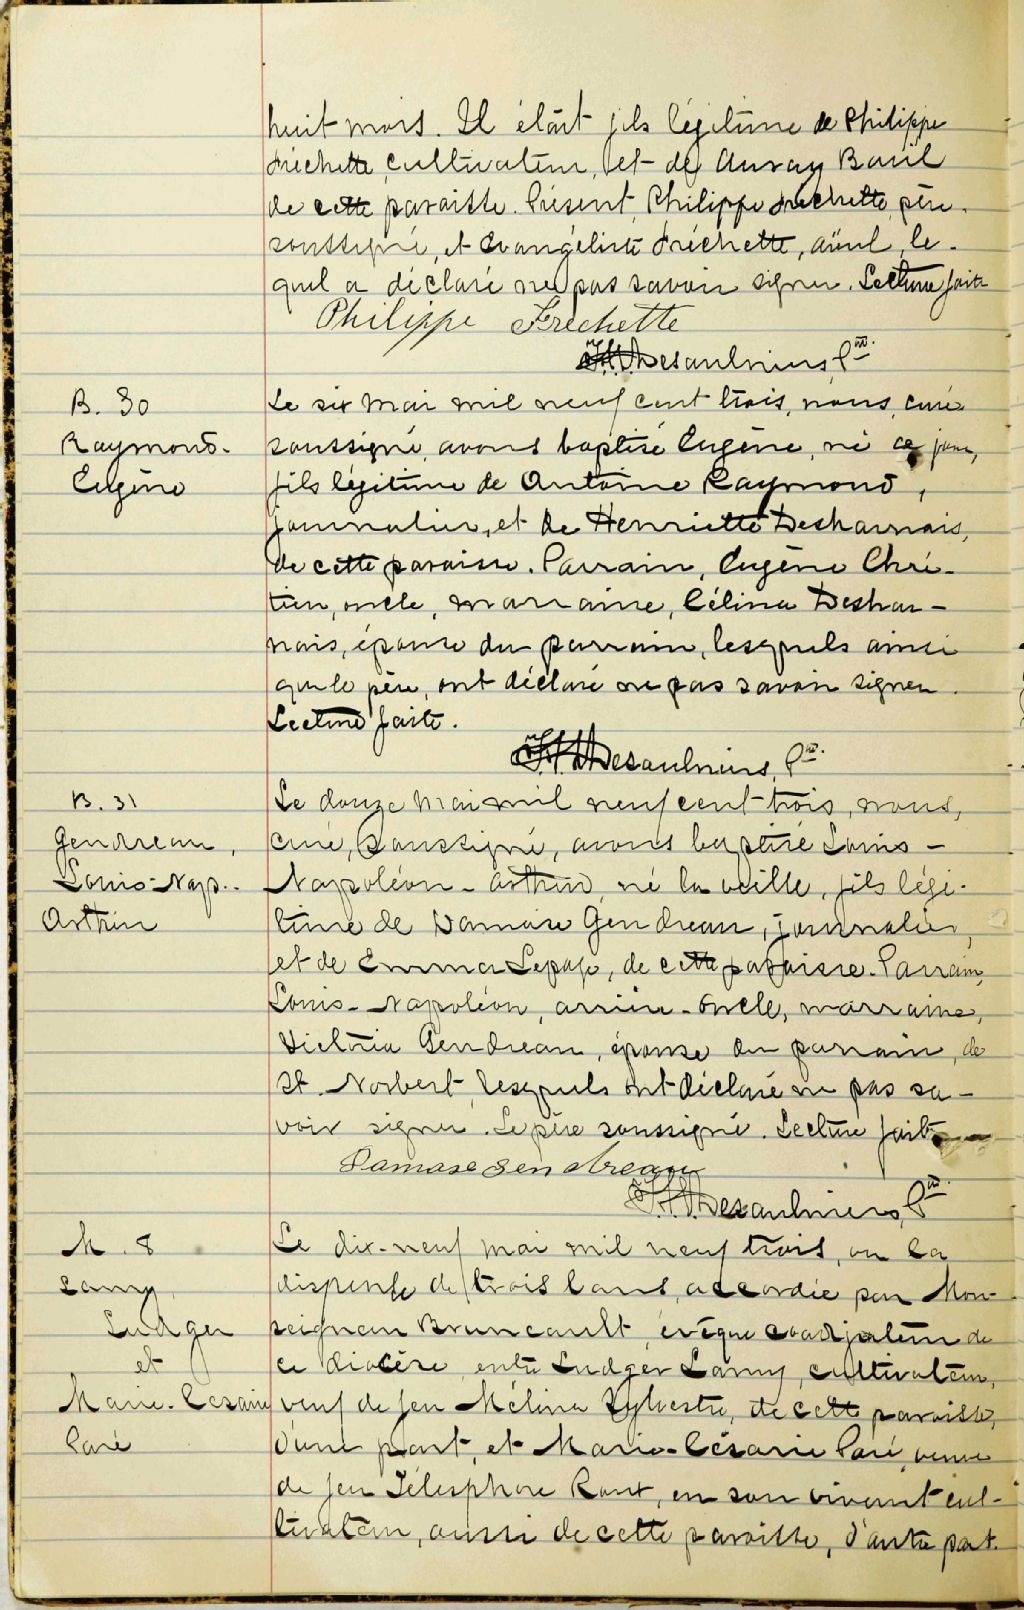 huit mois. Il était fils légitime de Philippe
Fréchette, cultivateur, et de Auray Baril
de cette paroisse. Présent, Philippe Fréchette, père
soussigné, et Evangéliste Fréchette, aïeul, le-
quel a déclaré ne pas savoir signer. Lecture faite
Philippe Frechette
Desaulniers, Ptre
B. 30
Raymond.
Eugène
Le six mai mil neuf cent trois, nous, curé
soussigné, avons baptisé Eugène, né ce jour,
fils légitime de Antoine Raymond,
journalier, et de Henriette Desharnais,
de cette paroisse. Parrain, Eugène Chré-
tien, oncle, marraine, Célina Deshar-
nais, épouse du parrain, lesquels ainsi
que le père, ont déclaré ne pas savoir signer.
Lecture faite.
Desaulniers, Ptre.
B. 31
Gendreau,
Louis-Nap.-
Arthur
Le douze mai mil neuf cent trois, nous,
curé, soussigné, avons baptisé Louis-
Napoléon-Arthur, né la veille, fils légi-
time de Damase Gendreau, journalier,
et de Emma Lepage, de cette paroisse. Parrain,
Louis-Napoléon, arrière-oncle, marraine,
Victoria Gendreau, épouse du parrain, de
St. Norbert, lesquels ont déclaré ne pas sa-
voir signer. Le père soussigné. Lecture faite
Damase Gendreau
Desaulniers, Ptre
M. 8
Lamy,
Ludger
et
Marie-Césarie
Paré
Le dix-neuf mai mil neuf trois, vu la
dispense de trois bans, accordée par Mon-
seigneur Brunault, évêque coadjuteur de
ce diocèse, entre Ludger Lamy, cultivateur,
veuf de feu Mélina Sylvestre, de cette paroisse,
d'une part, et Marie-Césarie Paré, veuve
de feu Télesphore Roux, en son vivant cul-
tivateur, aussi de cette paroisse, d'autre part.